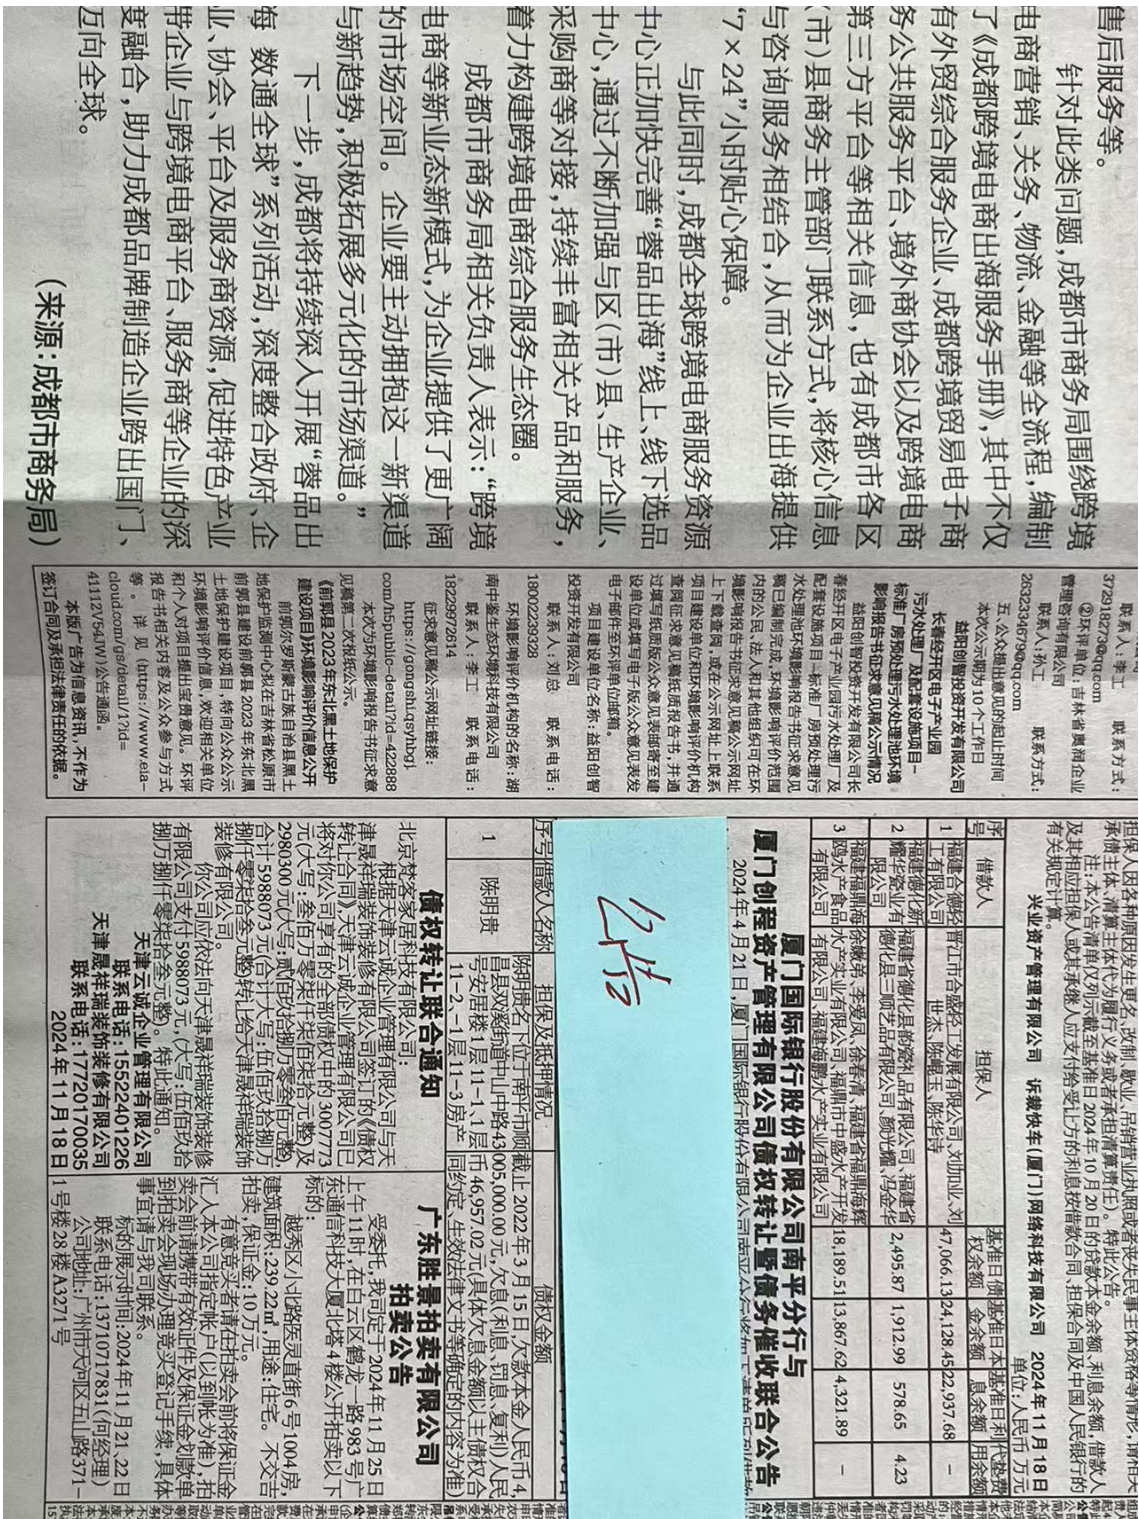 售后服务等。
针对此类问题,成都市商务局围绕跨境
电商营销、关务、物流、金融等全流程,编制
了《成都跨境电商出海服务手册》,其中不仅
有外贸综合服务企业、成都跨境贸易电子商
务公共服务平台、境外商协会以及跨境电商
第三方平台等相关信息,也有成都市各区
(市)县商务主管部门联系方式,将核心信息
与咨询服务相结合,从而为企业出海提供
“7×24”小时贴心保障。
与此同时,成都全球跨境电商服务资源
中心正加快完善“蓉品出海”线上、线下选品
中心,通过不断加强与区(市)县、生产企业、
采购商等对接,持续丰富相关产品和服务,
着力构建跨境电商综合服务生态圈。
成都市商务局相关负责人表示:“跨境
电商等新业态新模式,为企业提供了更广阔
的市场空间。企业要主动拥抱这一新渠道
与新趋势,积极拓展多元化的市场渠道。”
下一步,成都将持续深入开展“蓉品出
海 数通全球”系列活动,深度整合政府、企
业、协会、平台及服务商资源,促进特色产业
带企业与跨境电商平台、服务商等企业的深
度融合,助力成都品牌制造企业跨出国门、
迈向全球。
(来源:成都市商务局)
联系人:李工 联系方式:
372918273@qq.com
②环评单位:吉林省奥阔企业
管理咨询有限公司
联系人:孙工 联系方式:
2632334679@qq.com
五、公众提出意见的起止时间
本次公示期为10个工作日
益阳创智投资开发有限公司
长春经开区电子产业园
污水处理厂及配套设施项目-
标准厂房预处理污水处理池环境
影响报告书征求意见稿公示情况
益阳创智投资开发有限公司长
春经开区电子产业园污水处理厂及
配套设施项目-标准厂房预处理污
水处理池环境影响报告书征求意见
稿已编制完成,环境影响评价范围
内的公民、法人和其他组织可在环
境影响报告书征求意见稿公示网址
上下载查阅,或在公示网址上上联系
项目建设单位和环境影响评价机构
查阅征求意见稿纸质报告书,并通
过填写纸质版公众意见表邮寄至建
设单位或填写电子版公众意见表发
电子邮件至环评单位邮箱。
项目建设单位名称:益阳创智
投资开发有限公司
联系人:刘总 联系电话:
18002239328
环境影响评价机构的名称:湖
南中鉴生态环境科技有限公司
联系人:李工 联系电话:
18229972814
征求意见稿公示网址链接:
https://gongshi.qsyhbgj.
com/h5public-detail?id=422888
本次为环境影响报告书征求意
见稿第二次报纸公示。
《前郭县2023年东北黑土地保护
建设项目》环境影响评价信息公开
前郭尔罗斯蒙古族自治县黑土
地保护监测中心拟在吉林省松原市
前郭县建设前郭县2023年东北黑
土地保护建设项目,特向公众公示
环境影响评价信息,欢迎相关单位
和个人对项目提出宝贵意见。环评
报告书相关内容及公众参与方式
等。详见(https://www.eia-
cloud.com/gs/detail/1?id=
41112V54JW)公告通函。
本版广告为信息资讯,不作为
签订合同及承担法律责任的依据。
担保人因各种原因发生更名、改制、歇业、吊销营业执照或者丧失民事主体资格等情形,请相关
承债主体、清算主体代为履行义务或者承担清算责任)。特此公告。
注:本公告清单仅列示截至基准日2024年10月20日的贷款本金余额、利息余额,借款人
及其相应担保人或其承继人应支付给受让方的利息按借款合同、担保合同及中国人民银行的
有关规定计算。
兴业资产管理有限公司 诉裁快车(厦门)网络科技有限公司 2024年11月18日
单位:人民币 万元
序号 借款人 担保人 基准日债权余额 基准日本金余额 基准日利息余额 代垫费用余额
1 福建合德轻工有限公司 晋江市合盛轻工发展有限公司、刘加业、刘世杰、陈鲲玉、陈华诗 47,066.13 24,128.45 22,937.68 -
2 福建德化新耀华瓷业有限公司 福建省德化县韵瓷礼品有限公司、福建省德化县三顺艺品有限公司、颜光耀、冯金华 2,495.87 1,912.99 578.65 4.23
3 福建福鼎海鸥水产食品有限公司 徐嫩弟、李爱凤、徐春清、福建省福鼎海辉水产实业有限公司、福鼎市中盛水产开发有限公司、福建海鹏水产实业有限公司 18,189.51 13,867.62 4,321.89 -
厦门国际银行股份有限公司南平分行与
厦门创程资产管理有限公司债权转让暨债务催收联合公告
2024年4月21日,厦门国际银行股份有限公司南平分行将如下清单所列借款
公告
序号 借款人名称 担保及抵押情况 债权金额
1 陈明贵 陈明贵名下位于南平市顺昌县双溪街道中山中路43号安居楼1层11-1、1层11-2、-1层11-3房产 截止2022年3月15日,欠款本金人民币4,005,000.00元,欠息(利息、罚息、复利)人民币46,957.02元(具体欠息金额以主债权合同约定、生效法律文书等确定的内容为准)
债权转让联合通知
北京梵客家居科技有限公司:
根据天津云诚企业管理有限公司与天
津晟祥瑞装饰装修有限公司签订的《债权
转让合同》,天津云诚企业管理有限公司已
将对你公司享有的全部债权中的3007773
元(大写:叁佰万零柒仟柒佰柒拾元整)及
2980300元(大写贰佰玖拾捌万零叁佰元整,
合计5988073元(合计大写:伍佰玖拾捌万
捌仟零柒拾叁元整)转让给天津晟祥瑞装饰
装修有限公司。
你公司应依法向天津晟祥瑞装饰装修
有限公司支付5988073元,(大写:伍佰玖拾
捌万捌仟零柒拾叁元整)。特此通知。
天津云诚企业管理有限公司
联系电话:15522401226
天津晟祥瑞装饰装修有限公司
联系电话:17720170035
2024年11月18日
广东胜景拍卖有限公司
拍卖公告
受委托,我司定于2024年11月25日
上午11时,在白云区鹤龙一路983号广
东通信科技大厦北塔4楼公开拍卖以下
标的:
越秀区小北路医灵直街6号1004房,
建筑面积:239.22㎡,用途:住宅。不交吉
拍卖,保证金:10万元。
有意竞买者请在拍卖会前将保证金
汇入本公司指定帐户(以到帐为准),拍
卖会前请携带有效证件及保证金划款单
到拍卖会现场办理竞买登记手续,具体
事宜请与我司联系。
标的展示时间:2024年11月21、22日
联系电话:13710717831(何经理)
公司地址:广州市天河区五山路371-
1号楼28楼A3271号